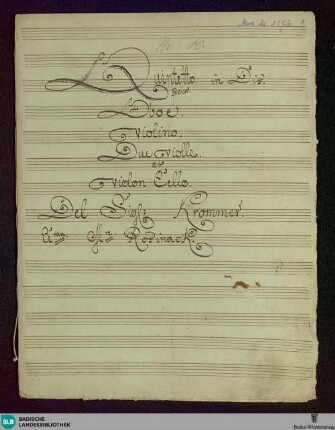 Mus. Hs. 1134
No 10.
Quintetto in Dis.
pour
Oboe
Violino.
Due Violle.
et
Violon Cello.
Del Sigl: Krommer.
BLB BADISCHE
LANDESBIBLIOTHEK
Baden-Württemberg